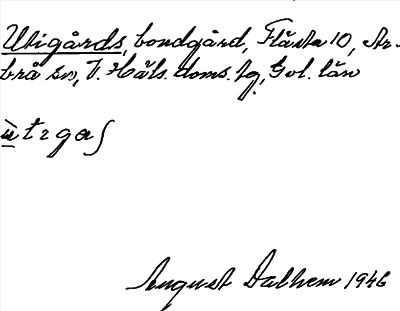 Utigårds, bondgård, Flästa 10, Ar-
brå sn, V. Häls. doms. tg, Gvl. län
ùtɪgaʃ
August Dalhem 1946